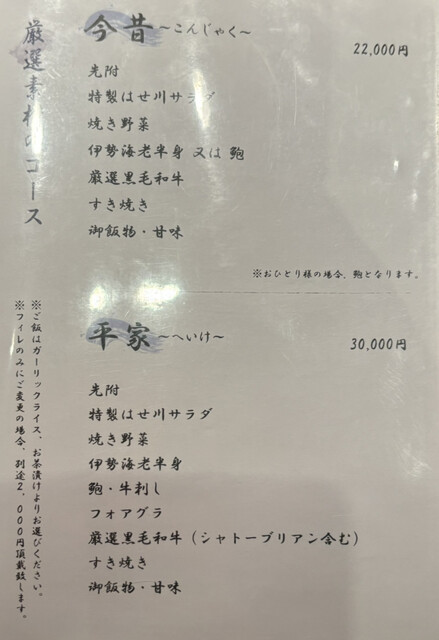 厳選素材のコース
今昔～こんじゃく～
22,000円
先附
特製はせ川サラダ
焼き野菜
伊勢海老半身 又は 鮑
厳選黒毛和牛
すき焼き
御飯物・甘味
※おひとり様の場合、鮑となります。
平家～へいけ～
30,000円
先附
特製はせ川サラダ
焼き野菜
伊勢海老半身
鮑・牛刺し
フォアグラ
厳選黒毛和牛（シャトーブリアン含む）
すき焼き
御飯物・甘味
※ご飯はガーリックライス、お茶漬けよりお選びください。
※フィレのみにご変更の場合、別途2,000円頂戴致します。